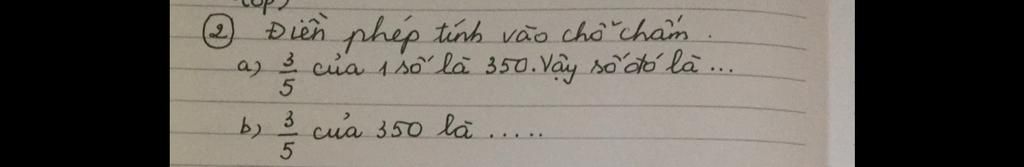 lớp)
② Điền phép tính vào chỗ chấm.
a) 3/5 của 1 số là 350. Vậy số đó là ...
b) 3/5 của 350 là .....